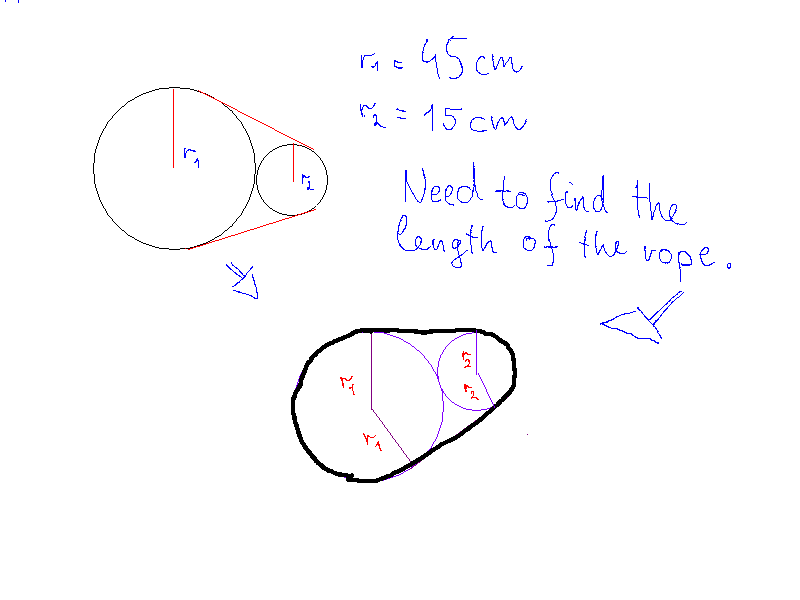 r1 = 45 cm
r2 = 15 cm
r1
r2
Need to find the
length of the rope.
r1
r2
r2
r1